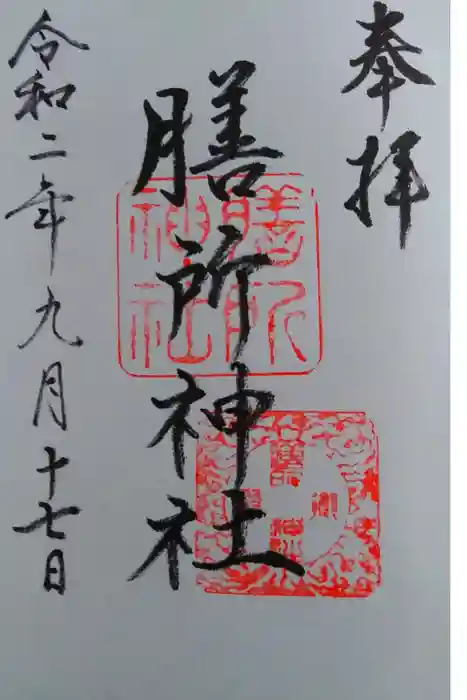 奉拝
膳所神社
膳所神社
令和二年九月十七日